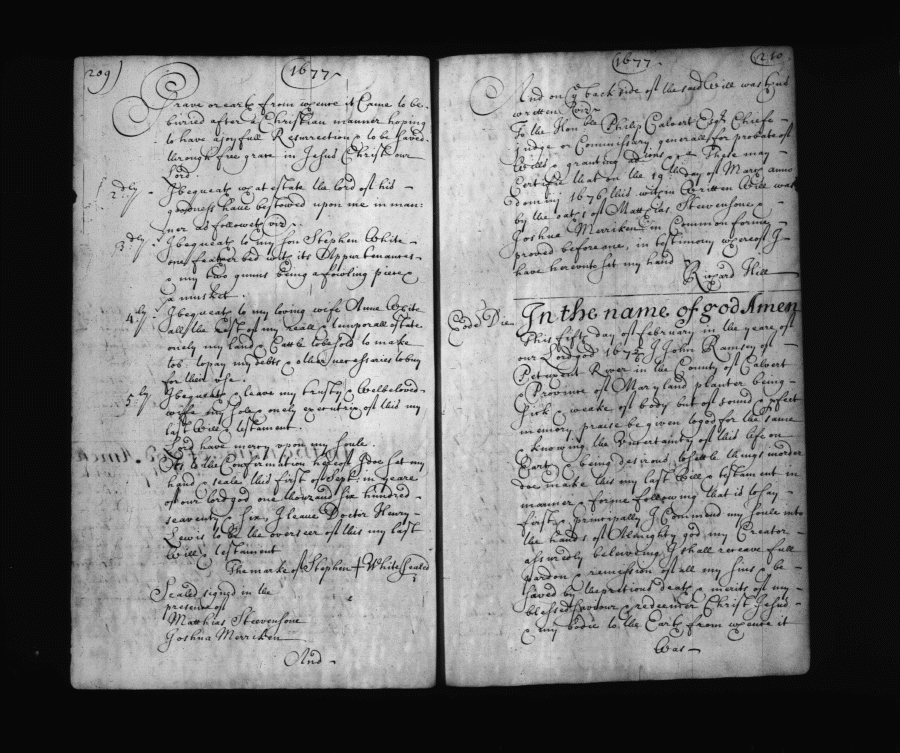 209)
1677
Grave or earth from whence it Came to be
buried after a Christian manner hoping
to have a joyfull Resurrection & to be saved
through free grace in Jesus Christ our
Lord.
2dly. I bequeath what estate the lord of his
goodness have bestowed upon me in man:
ner as followeth viz
3dly. I bequeath to my son Stephen White
one featherbed with its Appurtenances
& my two gunns being a fowling piece &
a musket.
4ly I bequeath to my loving wife Anne White
all the rest of my reall & temporall estate
onely my land & Cattle to be sold to make
tob: to pay my debts & other necessaries to buy
for their use.
5ly. I bequeath & leave my trusty & Welbeloved
wife my sole & onely executrix of this my
last Will & testament.
Lord have mercy upon my soule.
As to the Confirmation hereof I doe set my
hand & seale this first of Sept: in yeare
of our lordgod one thouzand six hundred
seaventy & six, I leave Doctor Henry
Lewis to be the overseer of this my last
Will & testament
The marke of Stephen + White Sealed
Sealed signed in the
presence of
Matthias Steevensone
Joshua Merriken
And
1677
210
And on ye back side of the said Will was thus
written viz
To the Honble Philip Calvert Esqr Cheife
Judge or Commissary generall for probate of
Wills & granting adcions &c These may
Certifie that on the 19th day of March anno
domini 1676 this within written Will was
by the oaths of Matthias Steevensone &
Joshua Merriken in Common forme
proved before me, in testimony whereof I
have hereunto set my hand
Richard Hill
Eodm Die
In the name of god Amen
This fifth day of february in the yeare of
our Lord god 1676 I John Ramsey of
Petuxent River in the County of Calvert
& Province of Maryland planter being
sick & weake of body but of sound & pfect
memory praise be given to god for the same
& knowing the uncertainty of this life on
Earth & being desirous to settle things in order
doe make this my last Will & testament in
manner & forme following that is to say
first & principally I Commend my soule into
the hands of Almighty god my Creator
assuredly beleiving I shall receave full
pardon & remission of all my sins & be
saved by the pretious death & merits of my
blessed saviour & redeemer Christ Jesus
& my bodie to the Earth from whence it
Was